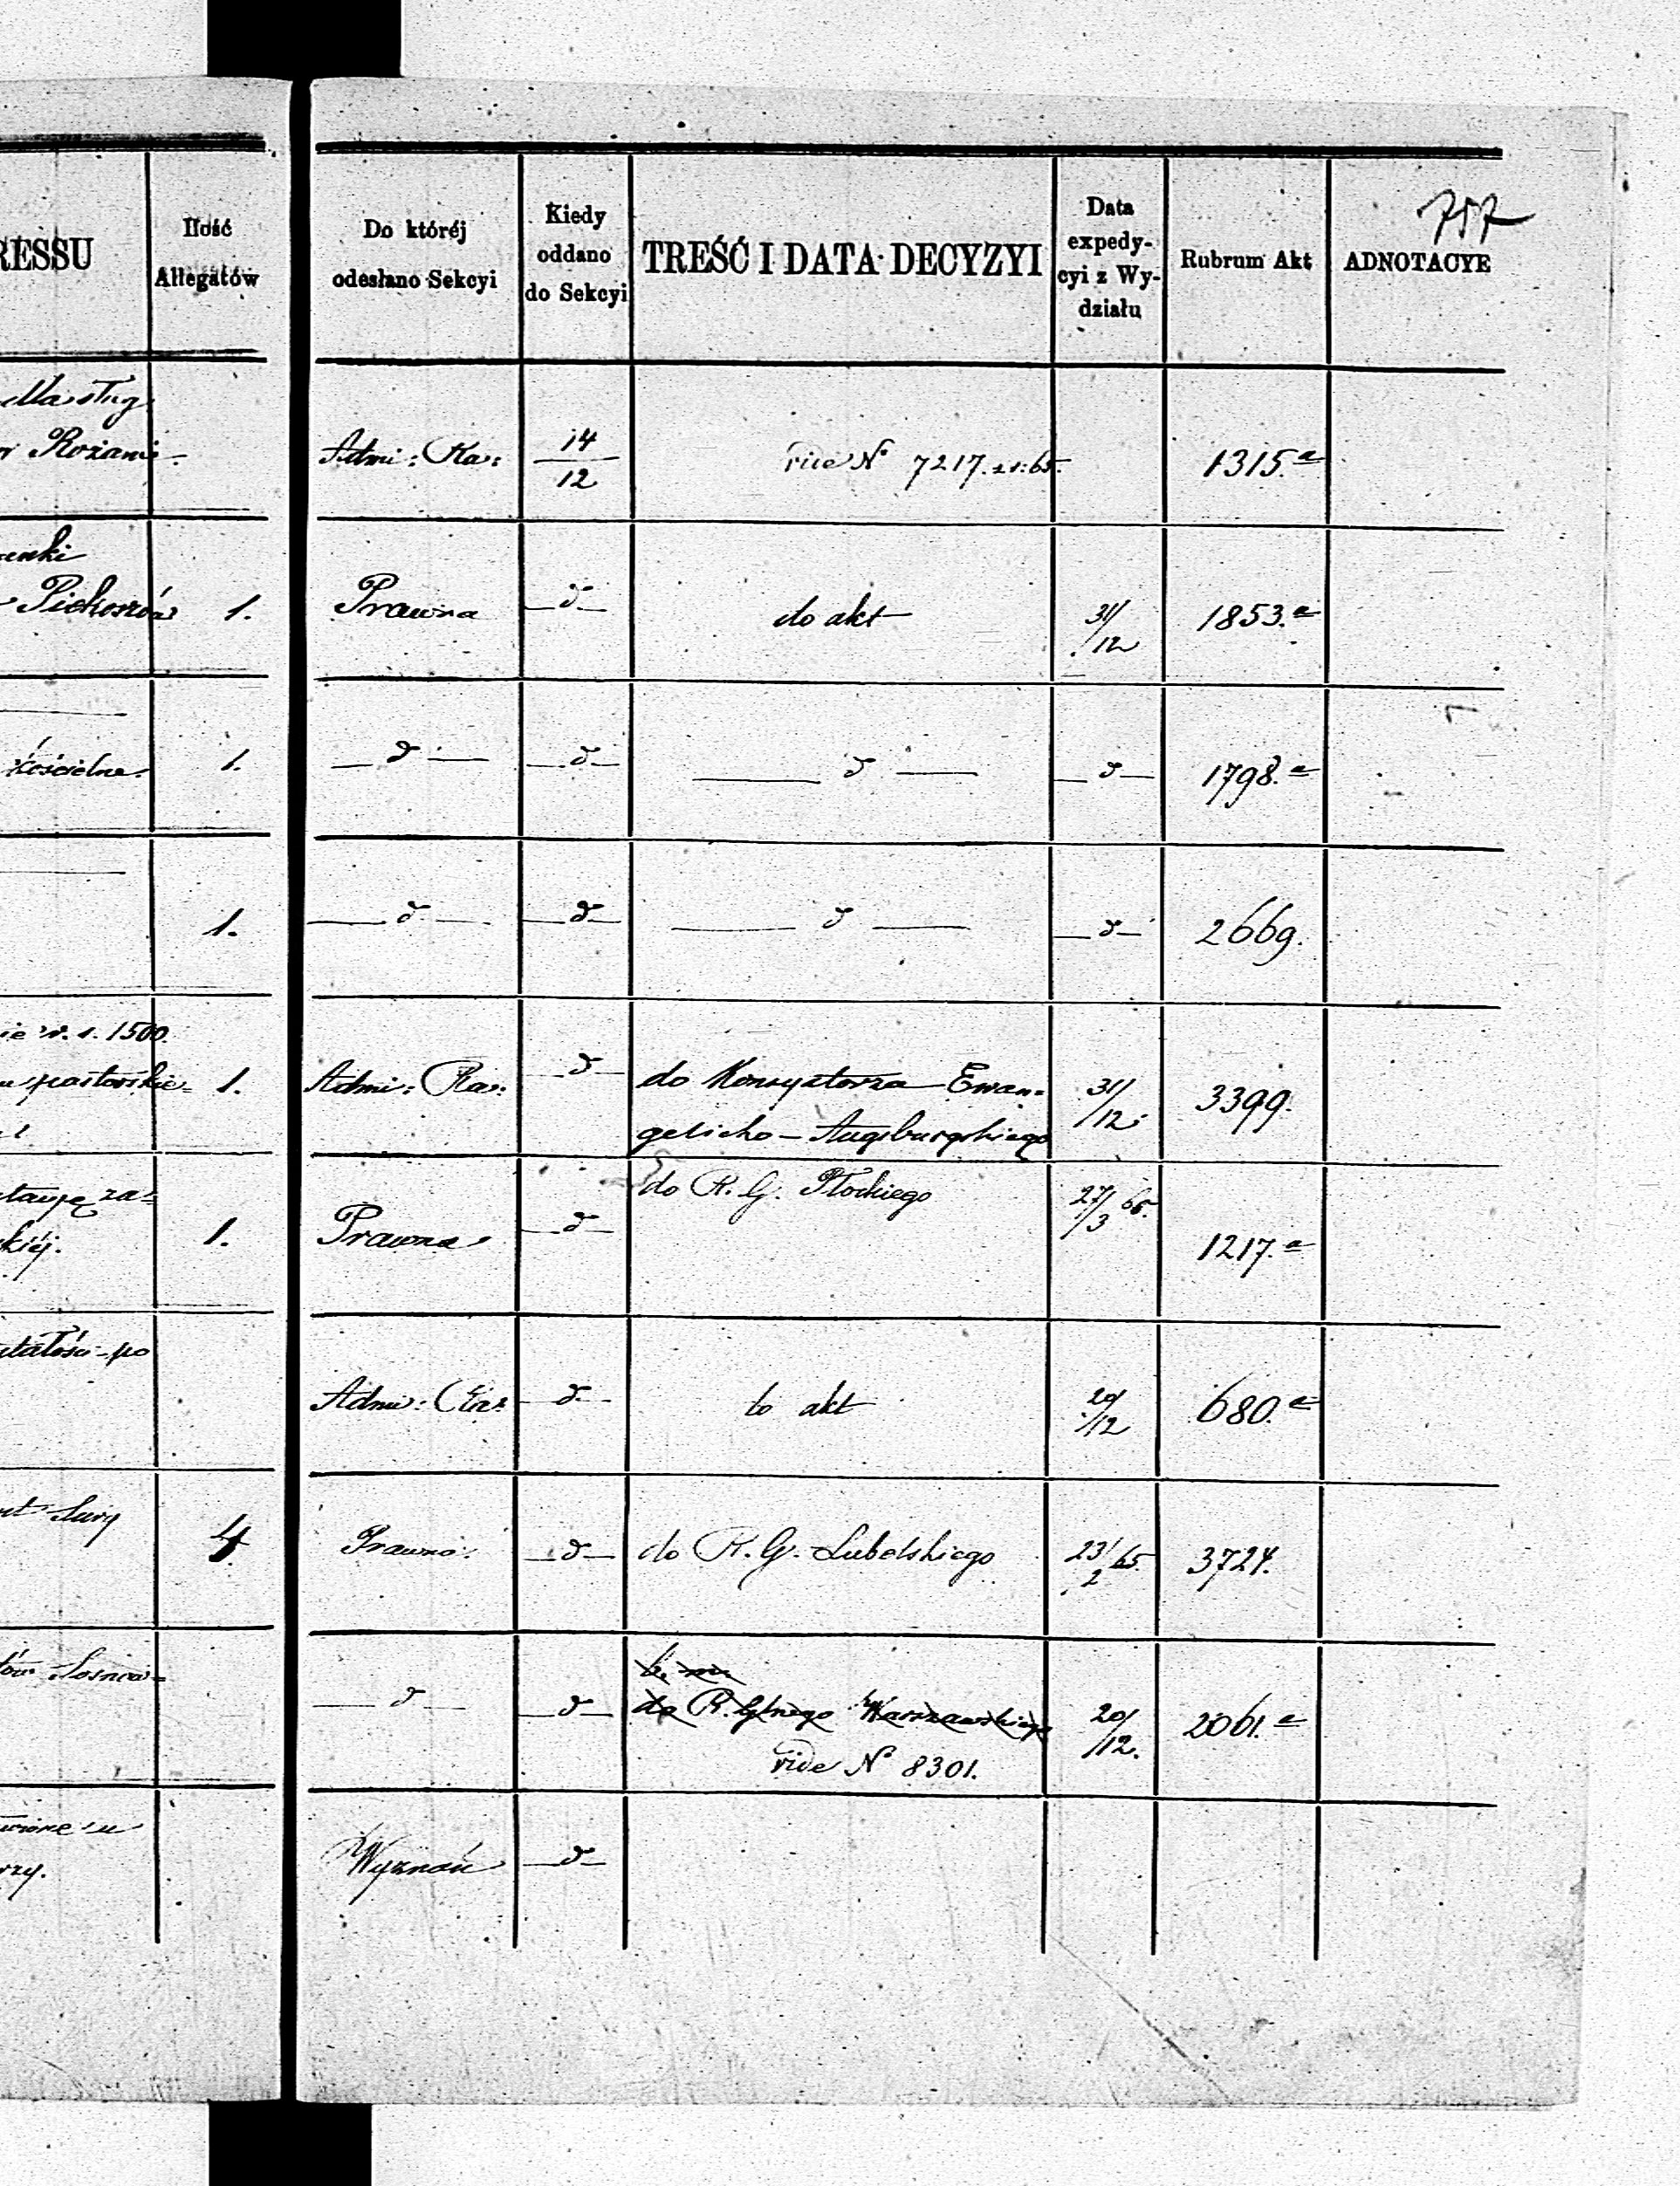 757
RESSU
Ilość
Allegatów
Do któréj
odesłano Sekcyi
Kiedy
oddano
do Sekcyi
TREŚĆ I DATA DECYZYI
Data
expedy-
cyi z Wy-
działu
Rubrum Akt
ADNOTACYE
Rożani-
Admi: Ka:
14
12
vide No 7217
1315.a
Pichoszów
1.
Prawna
— d —
do akt
31/12
1853.a
kościelne.
1.
— d —
— d —
— d —
— d —
1798.a
1.
— d —
— d —
— d —
— d —
2669.
1500.
1.
Admi: Ka:
— d —
do Konsystorza Ewan=
gelicko – Augsburgskiego
31/12
3399.
kiéj.
1.
Prawna
— d —
do R. G. Płockiego
27/3 65.
1217.a
po
Admi: Ka:
— d —
do akt
20/12
680.a
4
Prawna
— d —
do R. G. Lubelskiego
23/2 65.
3724.
— d —
— d —
do R. Glnego Warszawskiego
vide No 8301.
20/12.
2061.a
rzy.
Wyznań
— d —